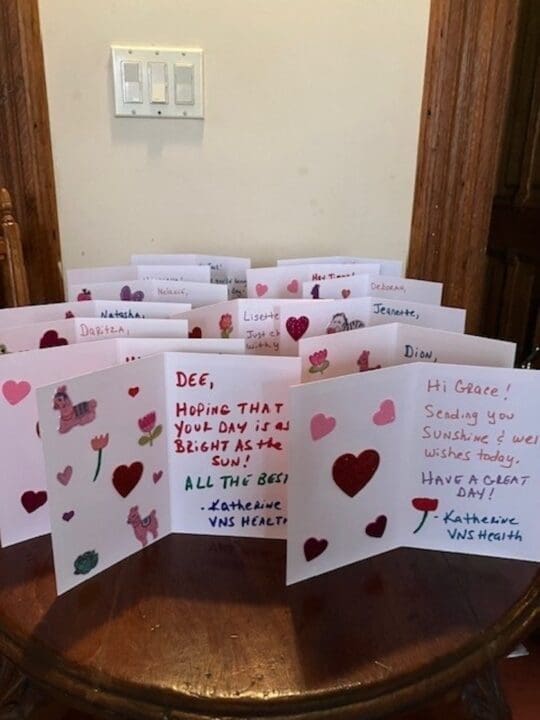 Hey
DEBORAH,
Melanie,
Natasha,
Lisette
Just c
with y
Jeanette,
DARITZA,
DION,
DEE,
HOPING THAT
YOUR DAY is as
BRIGHT AS the
SUN!
ALL THE BEST
- Katherine
VNS HEALTH
Hi GRACE!
Sending you
SUNSHINE & wel
wishes today.
HAVE A GREAT
DAY!
- Katherine
VNS Health